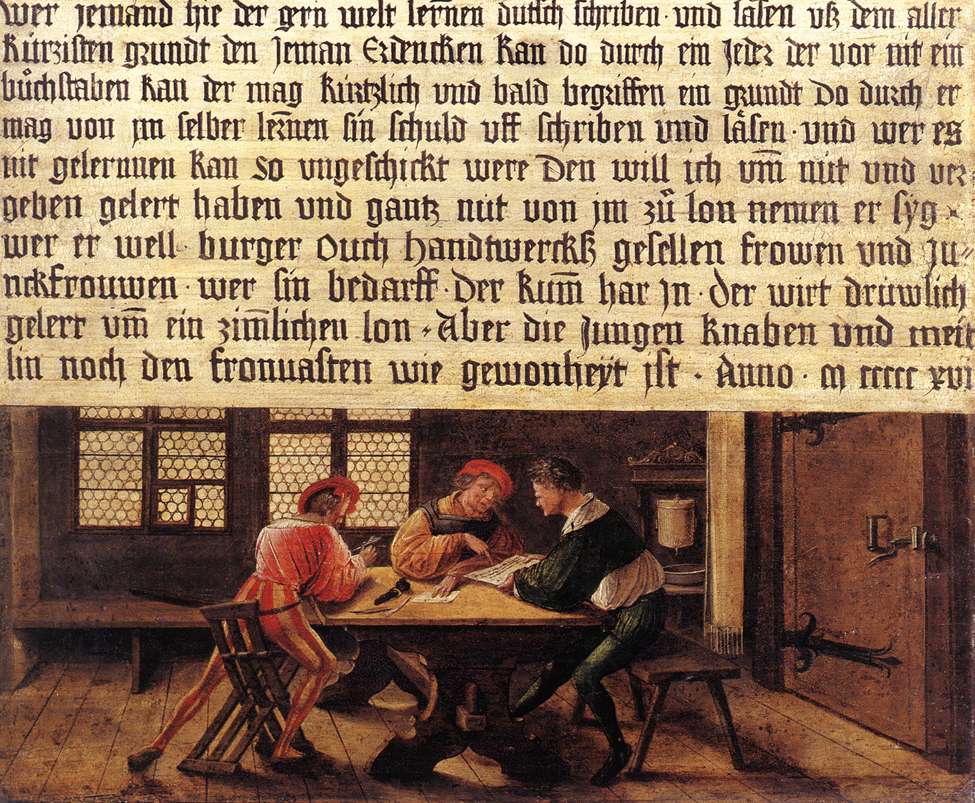 wer jemand hie der gern welt lernen dutsch schriben vnd läsen vß dem aller
kürzisten grundt den Jeman Erdencken kan do durch ein Jeder der vor nit ein
bůchstaben kan der mag kürtzlich vnd bald begriffen ein grundt do durch er
mag von jm selber lernen sin schuld vff schriben vnd läsen · vnd wer es
nit gelernnen kan so vngeschickt were Den will ich vm̄ nüt vnd ver-
geben gelert haben vnd gantz nüt von jm zů lon nemen er syg ·
wer er well · burger ouch handtwerckß gesellen frowen vnd Ju-
nckfrouwen · wer sin bedarff · Der kum̄ har jn · der wirt drüwlich
gelert vm̄ ein zim̄lichen lon · Aber die Jungen knaben vnd meit
lin noch den fronuasten wie gewonheyt jst · Anno · m ccccc xvi